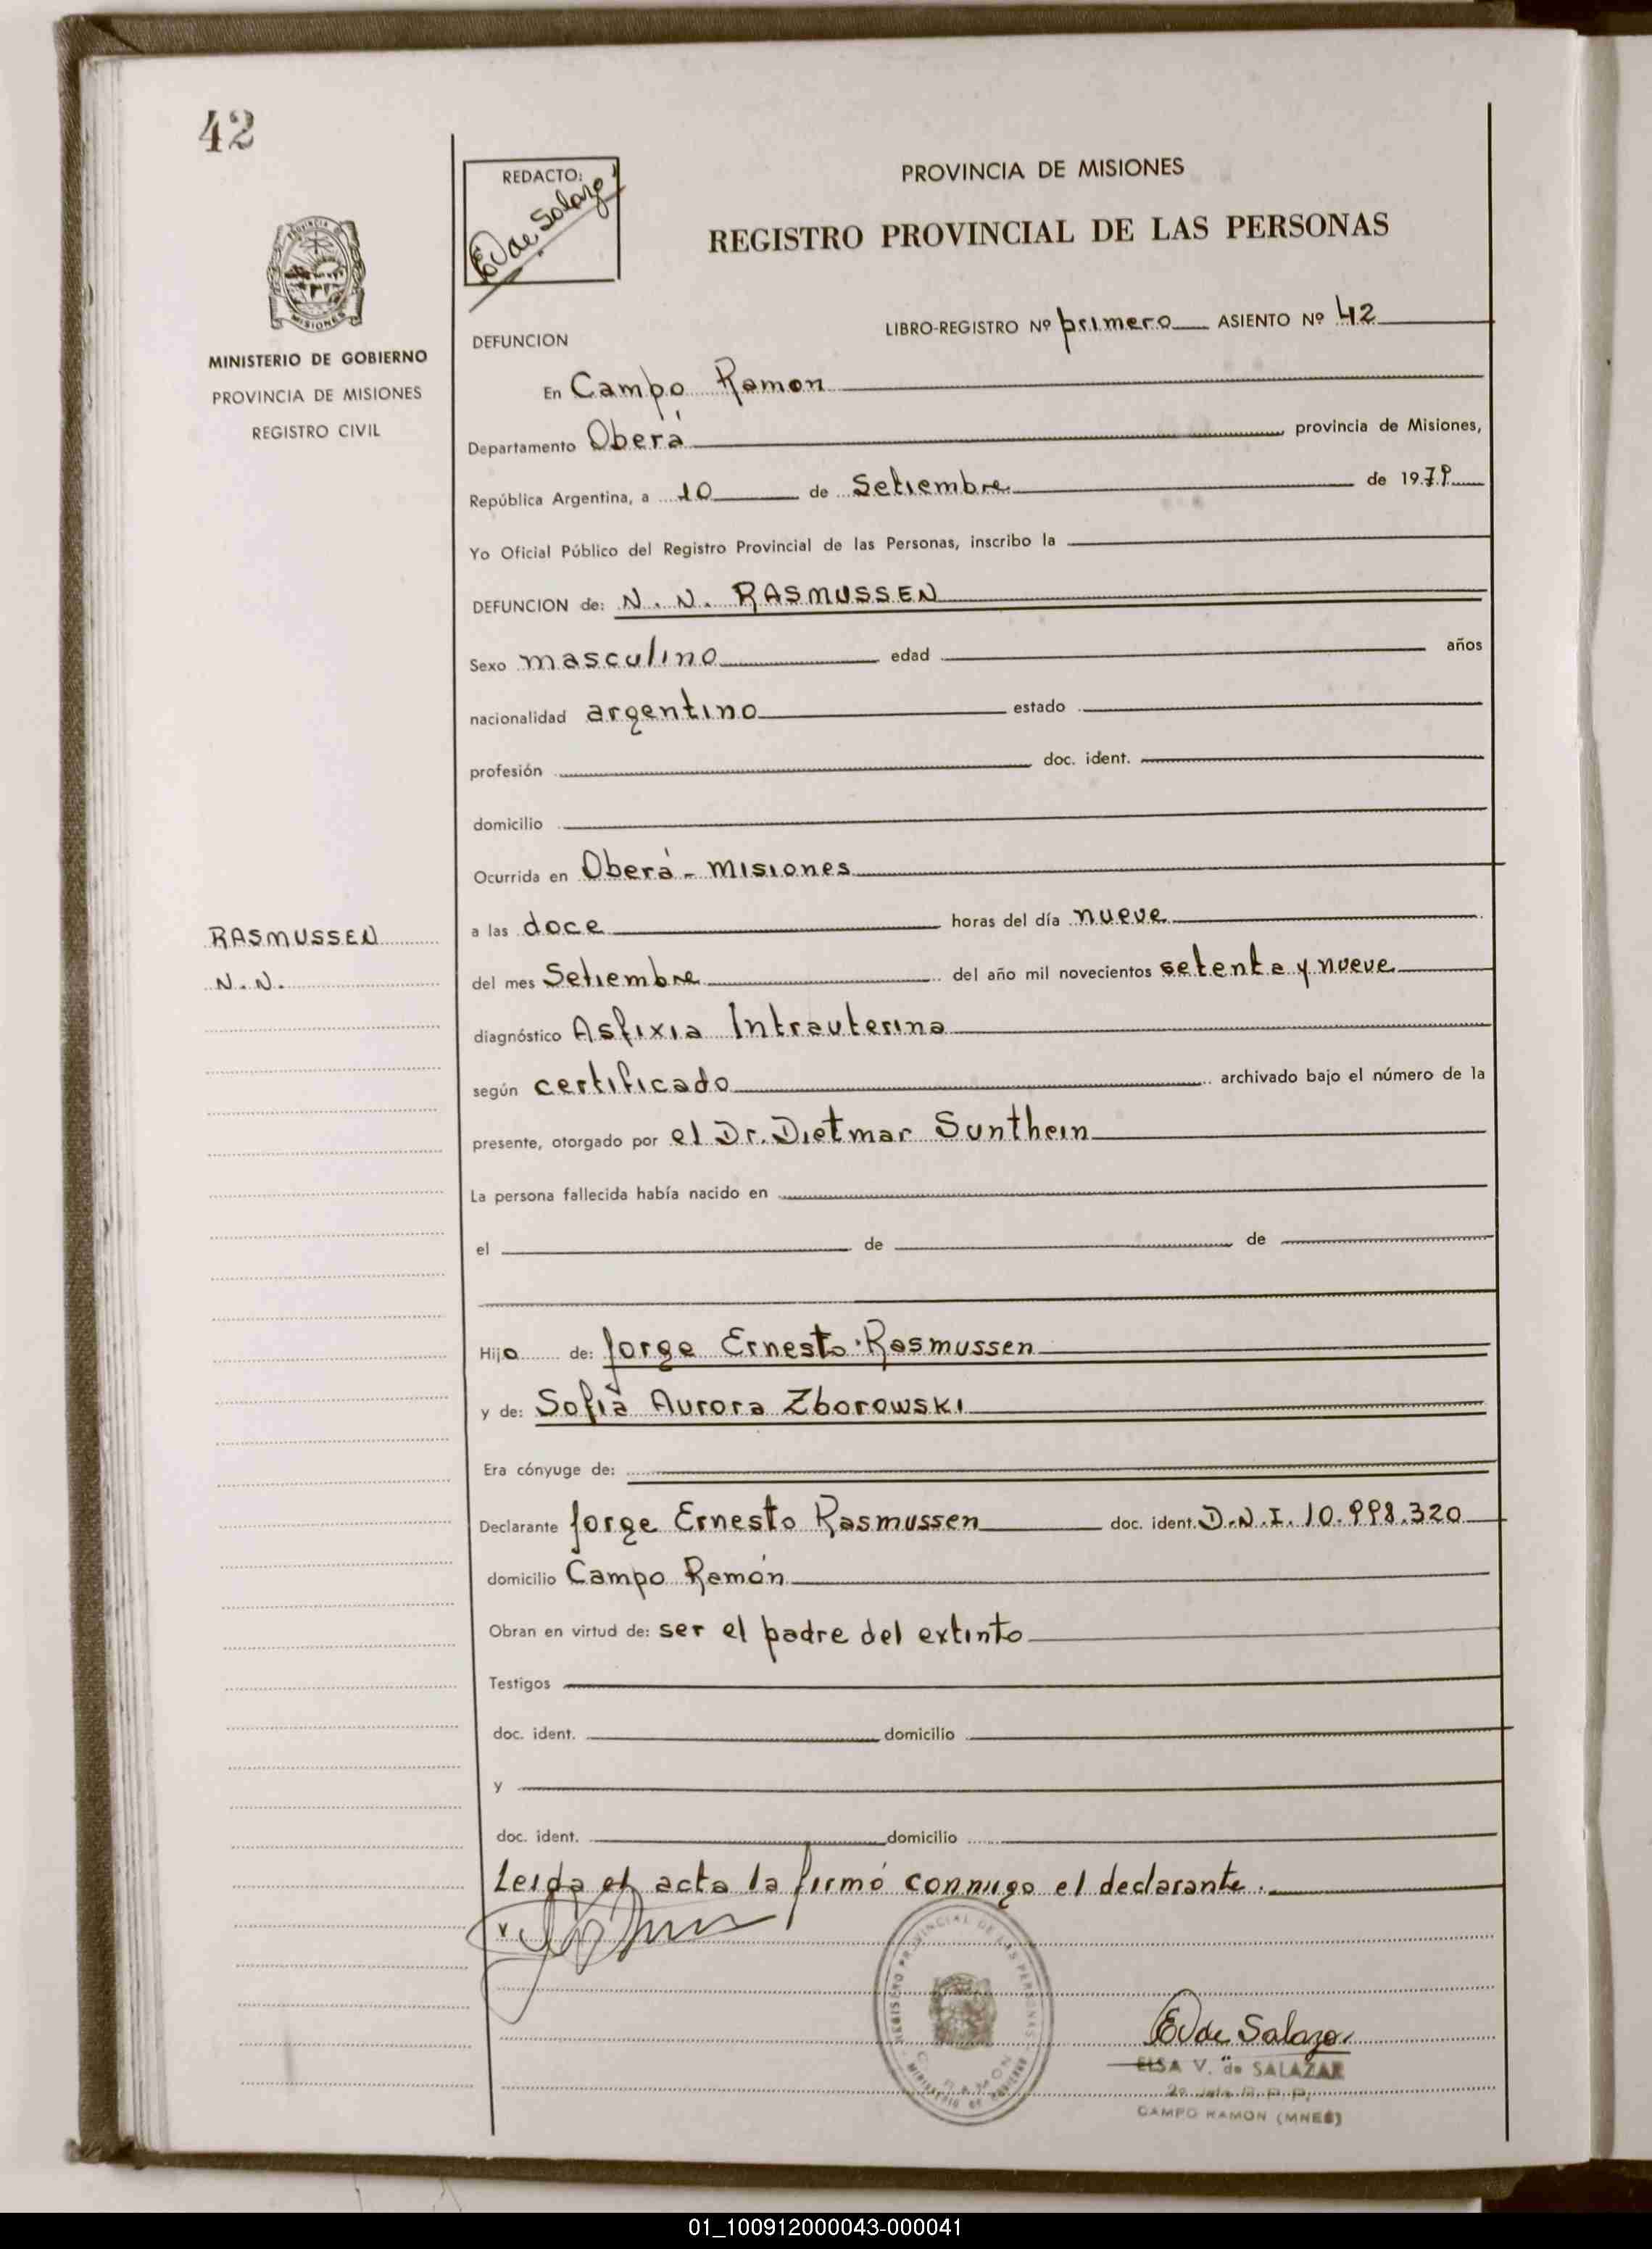 42
REDACTO:
EVde Salazar
PROVINCIA DE MISIONES
REGISTRO PROVINCIAL DE LAS PERSONAS
PROVINCIA DE
MISIONES
MINISTERIO DE GOBIERNO
PROVINCIA DE MISIONES
REGISTRO CIVIL
LIBRO-REGISTRO Nº primero ASIENTO Nº 42
DEFUNCION
En Campo Ramon
Departamento Oberá provincia de Misiones,
República Argentina, a 10 de Setiembre de 1979
Yo Oficial Público del Registro Provincial de las Personas, inscribo la
DEFUNCION de: N. N. RASMUSSEN
Sexo masculino edad años
nacionalidad argentino estado
profesión doc. ident.
domicilio
Ocurrida en Oberá - misiones
RASMUSSEN
N. N.
a las doce horas del día nueve
del mes Setiembre del año mil novecientos setenta y nueve
diagnóstico Asfixia Intrauterina
según certificado archivado bajo el número de la
presente, otorgado por el Dr. Dietmar Sunthein
La persona fallecida había nacido en
el de de
Hijo de: Jorge Ernesto Rasmussen
y de: Sofia Aurora Zborowski
Era cónyuge de:
Declarante Jorge Ernesto Rasmussen doc. ident. D.N.I. 10.998.320
domicilio Campo Ramón
Obran en virtud de: ser el padre del extinto
Testigos
doc. ident. domicilio
y
doc. ident. domicilio
Leida el acta la firmó conmigo el declarante.
REGISTRO PROVINCIAL DE LAS PERSONAS
C. RAMON
MINISTERIO DE GOBIERNO
EVde Salazar
ELSA V. de SALAZAR
CAMPO RAMON (MNES)
01_100912000043-000041